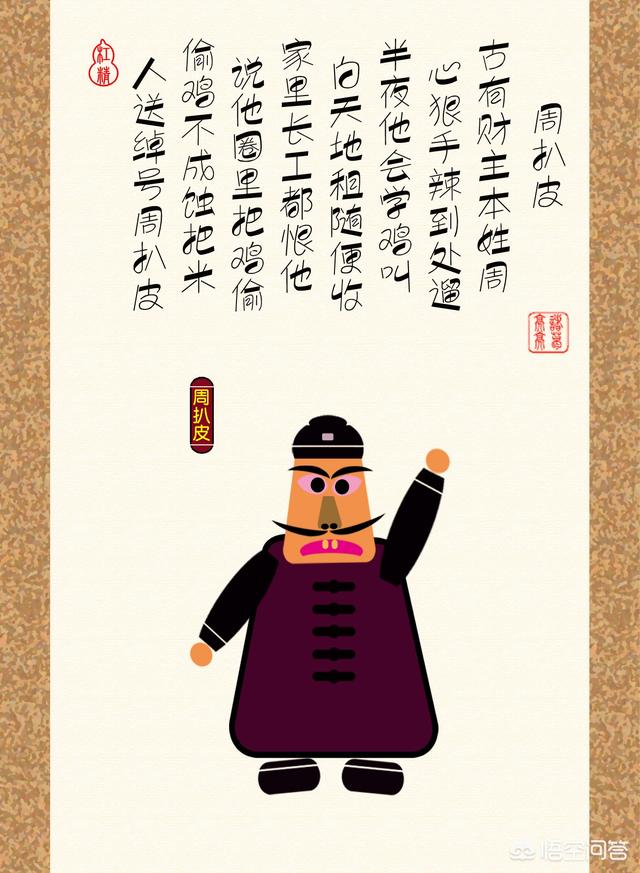 周扒皮
古有财主本姓周
心狠手辣到处遛
半夜他会学鸡叫
白天地租随便收
家里长工都恨他
说他圈里把鸡偷
偷鸡不成蚀把米
人送绰号周扒皮
紅精
周扒皮
悟空问答